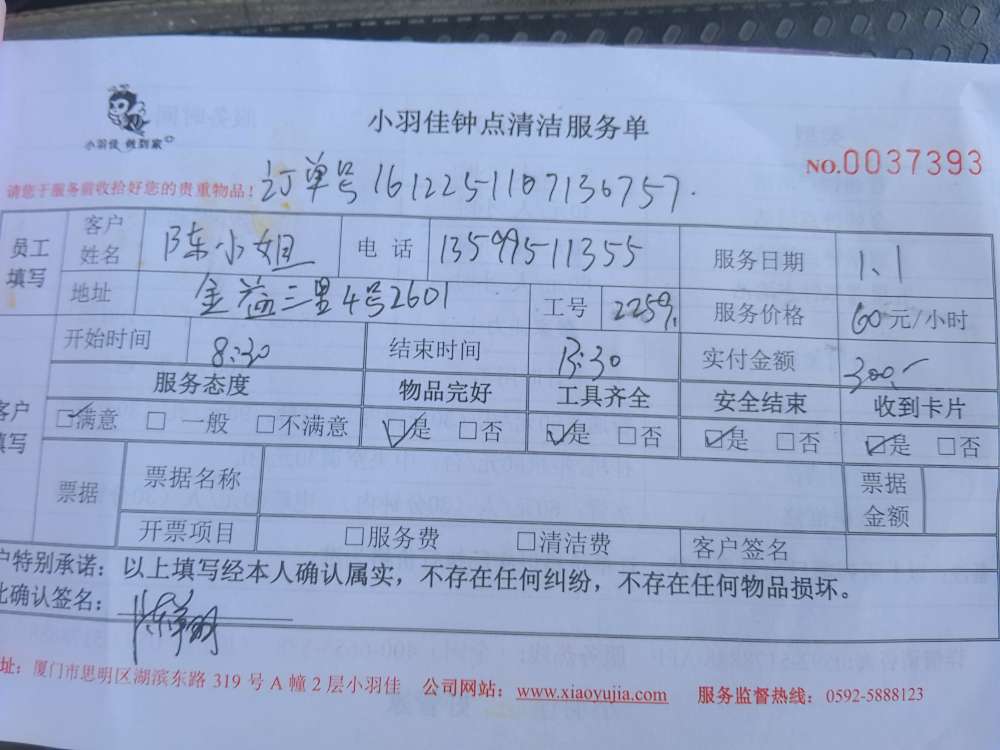 小羽佳 做到家
小羽佳钟点清洁服务单
NO.0037393
请您于服务前收拾好您的贵重物品！ 订单号 1612251107130757.
员工填写 客户姓名 陈小姐 电话 13599511355 服务日期 1.1
地址 金益三里4号2601 工号 2259. 服务价格 60元/小时
开始时间 8:30 结束时间 13:30 实付金额 300.-
客户填写 服务态度 物品完好 工具齐全 安全结束 收到卡片
☑满意 □ 一般 □不满意 ☑是 □否 ☑是 □否 ☑是 □否 ☑是 □否
票据 票据名称 票据金额
开票项目 □服务费 □清洁费 客户签名
户特别承诺：以上填写经本人确认属实，不存在任何纠纷，不存在任何物品损坏。
此确认签名：
址：厦门市思明区湖滨东路 319 号 A 幢 2 层小羽佳 公司网站：www.xiaoyujia.com 服务监督热线：0592-5888123